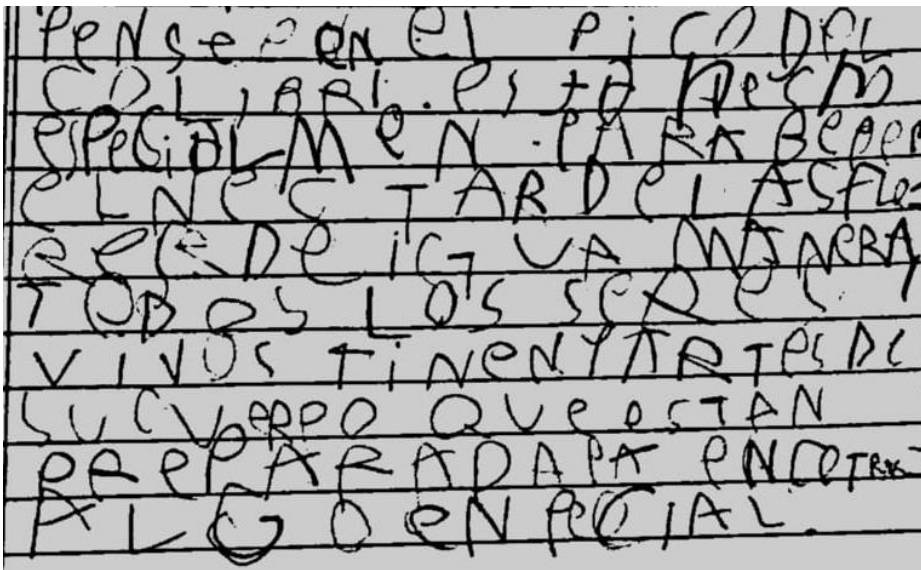 PeNSeP eN el PiCO DeL
COLiBRI. esta Hecm
esPeCiaLMeN PARA BeBeR
eLNeCSTARDeLASFLe
ReSeDeIGUA MANeRA
TODOS LOS SeReS Y
ViVOS TiNeNPARTesDe
SUCUePeO QUeeSTAN
PRePARADAPA eNCOTRR
ALGO eNPeCIAL.